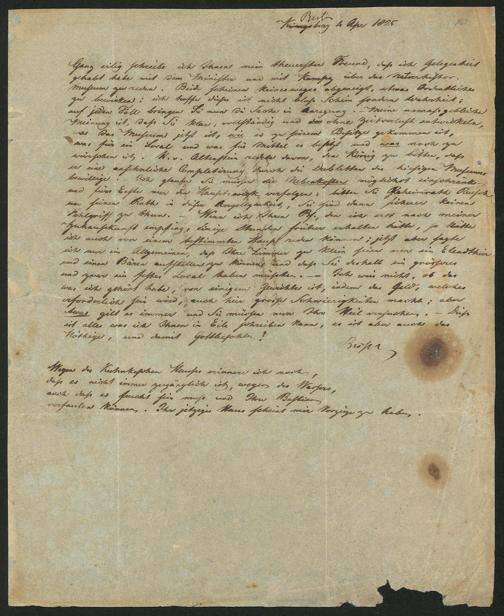 Berlin
Königsberg 4 Apr 1825
Ganz eilig schreibe ich Ihnen mein theuerster Freund, daß ich Gelegenheit
gehabt habe mit dem Minister und mit Kamptz über das Naturhistor.
Museum zu reden. Beide scheinen keineswegs abgeneigt, etwas Ordentliches
zu bewirken; ich hoffe dieß ist nicht bloß Schein sondern Wahrheit;
auf jeden Fall bringen Sie nun die Sache in Anregung. Meine unmaßgebliche
Meinung ist, daß Sie klar, vollständig und ohne entwickeln,
was das Museum jetzt ist, wie es zu seinem Besitze gekommen ist,
was für ein Local und was für Mittel es besitzt und was noch zu
wünschen ist. H. v. Altenstein redete davon, den König zu bitten, daß
er eine ansehnliche Completirung durch die Doubletten des hiesigen Museums
bewillige. Ich glaube Sie müssen die
und fürs Erste nur die Haupt verfolgen; bitten Sie Geheimrath
um seinen Rath in dieser Angelegenheit, Sie sind dann sicherer keinen
Fehlgriff zu thun. Wenn ich Ihren Br., den ich erst nach meiner
Zuhausekunft empfing, einige Stunden früher erhalten hätte, so hätte
ich auch von einem bestimmten Hause reden können; jetzt aber sagte
ich nur im Allgemeinen, daß Ihre Zimmer zu klein seien um ein Elendthier
und einen Bären aufstellen zu können und daß Sie deshalb ein größeres
und zwar ein Local haben müßten. — Ich weiß nicht, ob das
was ich gehört habe, von einigem Gewichte ist, indem das Geld, welches
erforderlich sein wird, auch hier große Schwierigkeiten macht; aber
gilt es immer und Sie müssen nun Ihr Heil versuchen. — Dieß
ist alles was ich Ihnen in Eile schreiben kann, es ist aber auch das
Nöthige, und damit Gottbefohlen!
Bessel
Wegen des Hauses erinnere ich noch,
daß es nicht immer zugänglich ist, wegen des Wassers,
auch daß es feucht sein muß und Ihre Bestien
verfaulen können. Ihr jetziges Haus scheint mir Vorzüge zu haben.